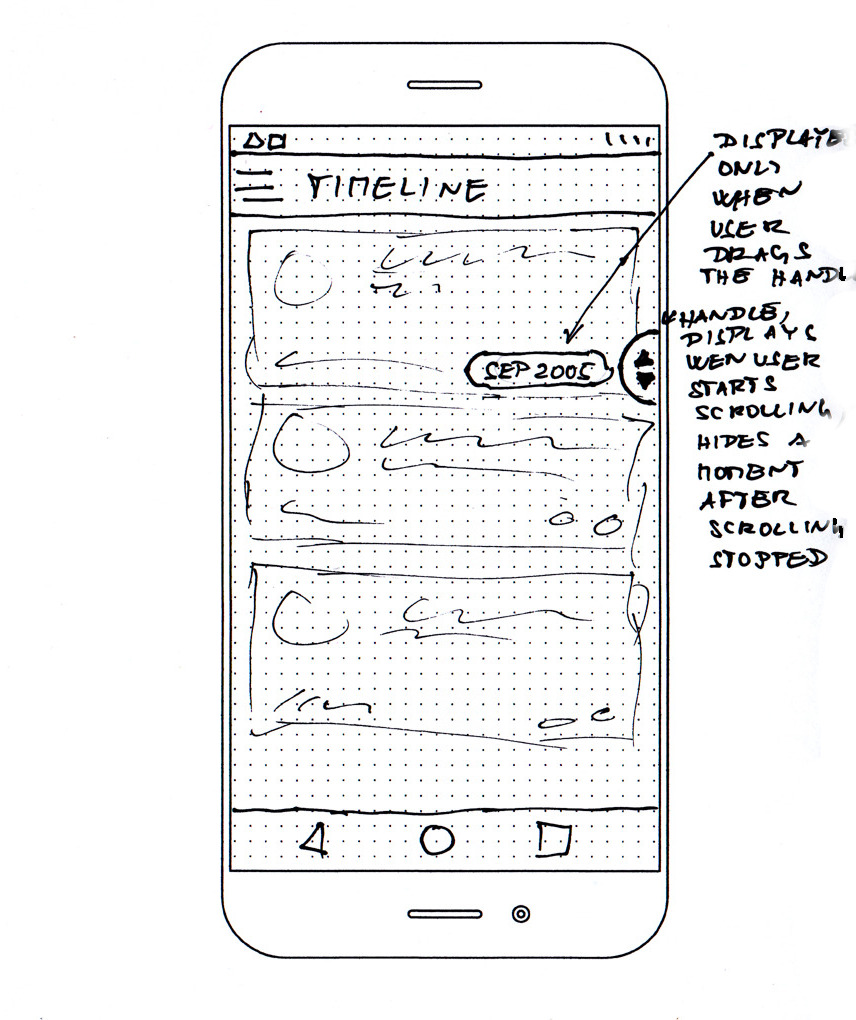 TIMELINE
SEP 2005
DISPLAYE
ONLY
WHEN
USER
DRAGS
THE HANDL
HANDLE,
DISPLAYS
WEN USER
STARTS
SCROLLING
HIDES A
MOMENT
AFTER
SCROLLING
STOPPED